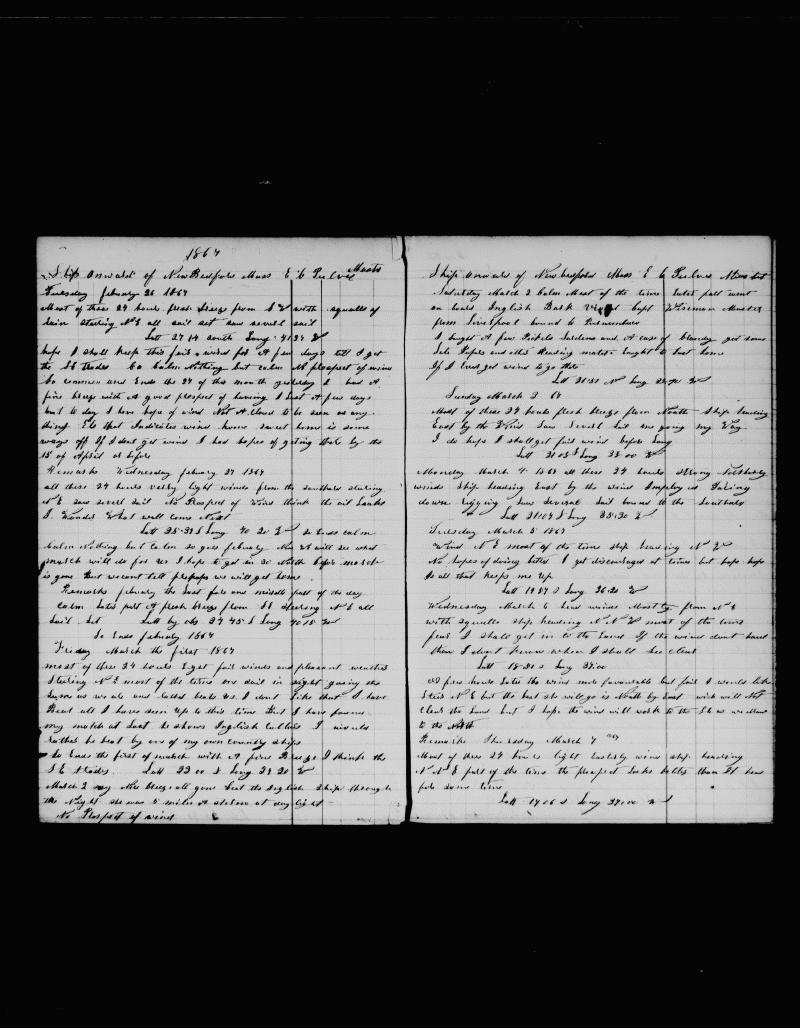 1867
Ship Onward of New Bedford Mass E C Pulver Master
Tuesday february 26 1867
Most of these 24 hours fresh breeze from S E with squalls of
rain stering N E all sail set saw severl sail
Latt 27 14 south Long 41 34 W
hope I shall keep this fair wind for A few days till I get
the SE trades but calm Nothing but calm No prospect of wind
So commences and Ends the 27 of this month yesterday I had A
fine breeze with A good prospect of having I last A few days
but to day I have hope of wind Not A cloud to be seen or any
thing Els that Indicates wind home sweet home is some
ways off If I dont get wind I had hopes of getting there by the
15 of April or before
Remarks Wednesday february 27 1867
all these 24 hours varby light winds from the southard stering
N E saw severl sail No Prospect of Wind think the
I Wonder What will come Next
Latt 25.38 S Long 40 20 W so Ends calm
Calm Nothing but Calm so goes february Now We will see what
march will do for us I hope to get in 30 North before march
is gone but we cant tell perhaps we will get home
Remarks february the last fore and middle part of the day
Calm later part A fresh breeze from SE stering N E all
sail set Latt by obs 24 45 S Long 40 15 W
So Ends february 1867
Friday March the first 1867
most of these 24 hours light fair winds and pleasant weather
Stering N E most of the time one sail in sight going the
same as we do and beats us. I dont like that I have
Beat all I have seen up to this time But I have found
my match at last he shows English collors I would
rather be beat by one of my own country ships
So Ends the first of march with A fine Breeze I think the
S E trades. Latt 23 00 S Long 39 20 W
March 2 my Nice breeze all gone beat the English ship through
the Night she was 8 miles A stern at day light
No Prospect of wind
Ship Onward of New bedford Mass E C Pulver Master
Saturday March 2 Calm Most of the time later part went
on board English Bark Capt Wiseman Master
from Liverpool bound to Pernambuco
I bought A few Pickels Sardens and A case of brandy got some
late Papers and other Reading matter bought to last home
If I ever get wind to go there
Latt 21 51 Long W
Sunday March 3 67
Most of these 24 hours flesh breeze from North Ship heading
East by the Wind Saw Severl Sail going my Way
I do hope I shall get fair wind before Long
Latt 21 05 S Long 38 00 W
Monday March 4 1867 all these 24 hours strong Notherly
winds ship heading East by the wind Employed Taking
down rigging saw several sail bound to the Southard
Latt 21 04 S Long 35.30 W
Tuesday March 5 1867
Wind N E most of the time ship heading N W
No hopes of doing better I get discouraged at times but hope hope
Is all that keeps me up
Latt 19 57 S Long 36 20 W
Wednesday March 6 head winds Mostly from N E
with squalls ship heading N N W most of the time
fear I shall get in to the Land If the wind dont haul
then I dont know when I shall See clent
Latt 18.21 S Long 37.00
A few hours later the wind more favourable but fair I would like
Steer N E but the best she will go is North by East wich will Not
Clear the land but I hope the wind will work to the SE as we draw
to the North
Remarks Thursday March 7 1867
Most of these 24 hours light Easterly wind ship heading
N N E part of the time the prospect looks better than It has
for some time
Latt 17 06 S Long 37.00 W